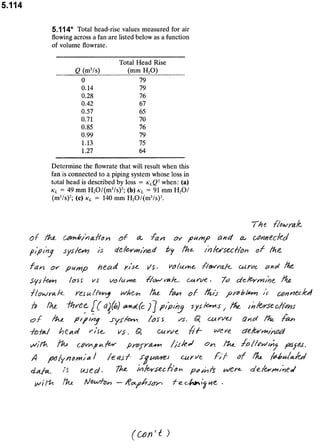 5.114
5.114* Total head-rise values measured for air
flowing across a fan are listed below as a function
of volume flowrate.
Total Head Rise
Q (m³/s) (mm H₂O)
0 79
0.14 79
0.28 76
0.42 67
0.57 65
0.71 70
0.85 76
0.99 79
1.13 75
1.27 64
Determine the flowrate that will result when this
fan is connected to a piping system whose loss in
total head is described by loss = κ_L Q² when: (a)
κ_L = 49 mm H₂O/(m³/s)²; (b) κ_L = 91 mm H₂O/
(m³/s)²; (c) κ_L = 140 mm H₂O/(m³/s)².
The flowrate
of the combination of a fan or pump and a connected
piping system is determined by the intersection of the
fan or pump head rise vs. volume flowrate curve and the
system loss vs volume flowrate curve. To determine the
flowrate resulting when the fan of this problem is connected
to the three [(a)(b) and (c)] piping systems, the intersections
of the piping system loss vs. Q curves and the fan
total head rise vs. Q curve fit were determined
with the computer program listed on the following pages.
A polynomial least squares curve fit of the tabulated
data is used. The intersection points were determined
with the Newton - Raphson technique.
(con't)